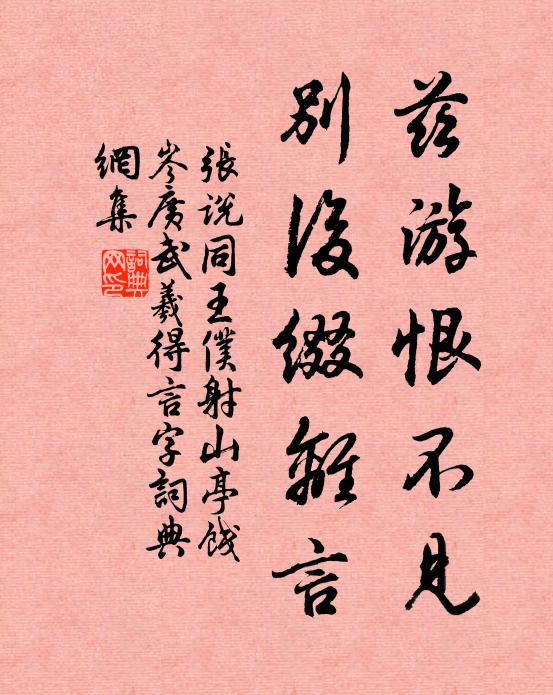 茲游恨不見
別後綴離言
張説同王僕射山亭餞
岑廣武羲得言字詞典
網集
詞典
网印